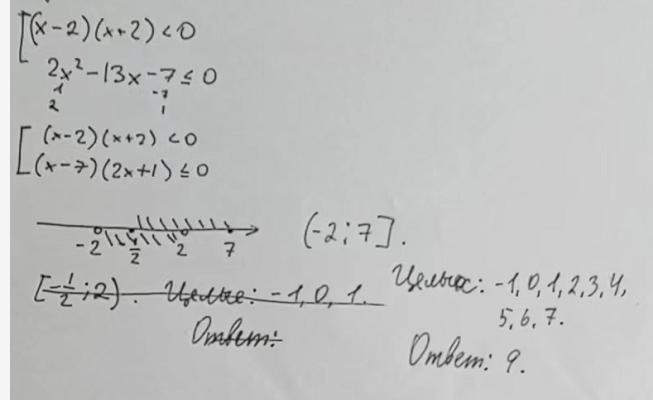 [(x-2)(x+2)<0
2x²-13x-7≤0
1 -7
2 1
[(x-2)(x+2)<0
(x-7)(2x+1)≤0
-2 -1/2 2 7 (-2;7].
[-1/2;2). Целые: -1,0,1.
Ответ:
Целые: -1,0,1,2,3,4,
5,6,7.
Ответ: 9.